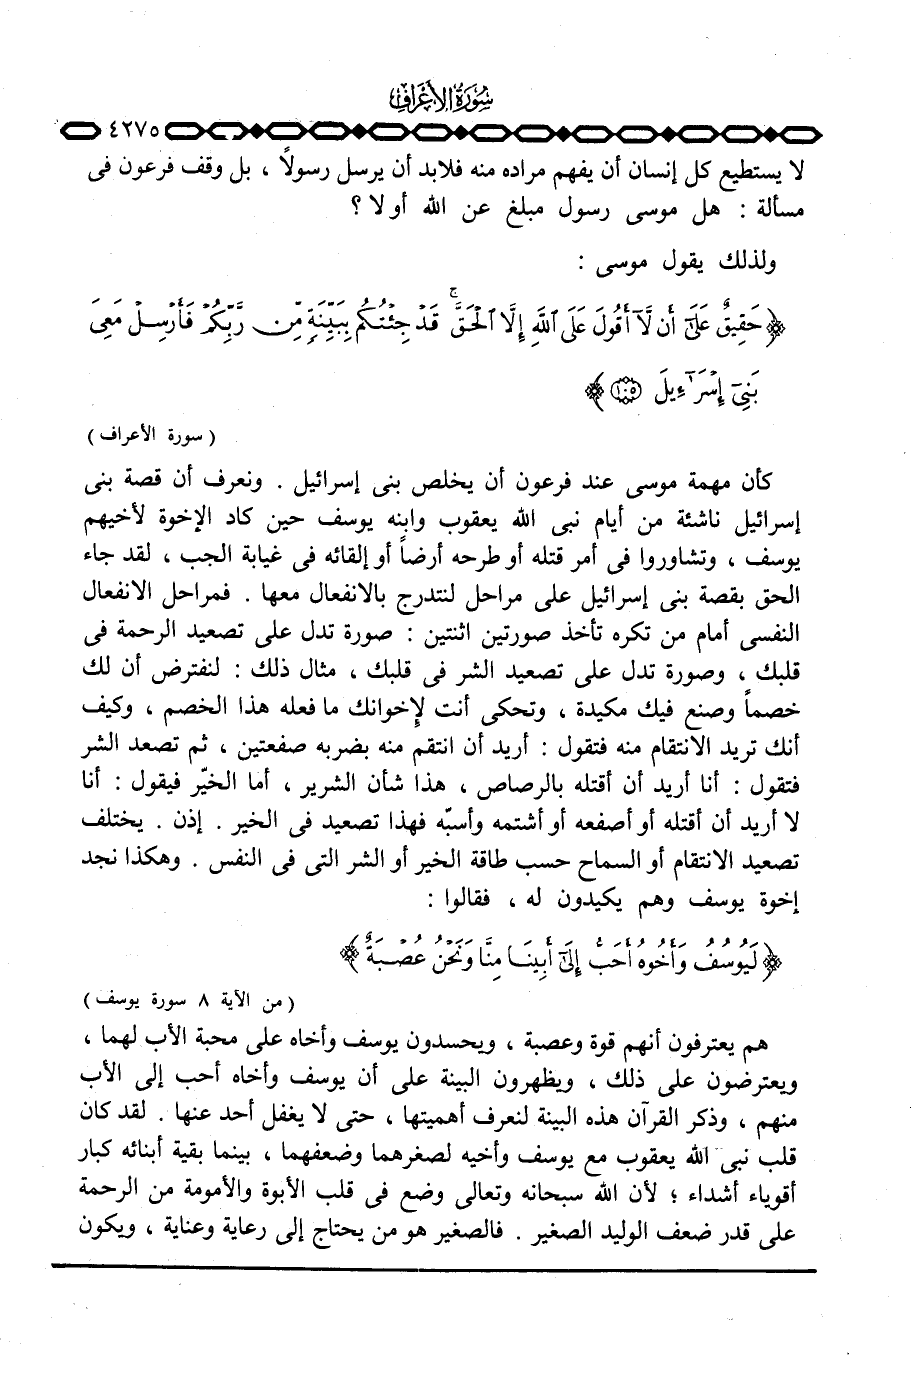 سُورَةُ الأَعْرَافِ
٤٢٧٥
لا يستطيع كل إنسان أن يفهم مراده منه فلابد أن يرسل رسولاً ، بل وقف فرعون فى
مسألة : هل موسى رسول مبلغ عن الله أو لا ؟
ولذلك يقول موسى :
﴿ حَقِيقٌ عَلَىٰٓ أَن لَّآ أَقُولَ عَلَى ٱللَّهِ إِلَّا ٱلْحَقَّ ۚ قَدْ جِئْتُكُم بِبَيِّنَةٍ مِّن رَّبِّكُمْ فَأَرْسِلْ مَعِىَ
بَنِىٓ إِسْرَٰٓءِيلَ ١٠٥ ﴾
( سورة الأعراف )
كأن مهمة موسى عند فرعون أن يخلص بنى إسرائيل . ونعرف أن قصة بنى
إسرائيل ناشئة من أيام نبى الله يعقوب وابنه يوسف حين كاد الإخوة لأخيهم
يوسف ، وتشاوروا فى أمر قتله أو طرحه أرضاً أو إلقائه فى غيابة الجب ، لقد جاء
الحق بقصة بنى إسرائيل على مراحل لنتدرج بالانفعال معها . فمراحل الانفعال
النفسى أمام من تكره تأخذ صورتين اثنتين : صورة تدل على تصعيد الرحمة فى
قلبك ، وصورة تدل على تصعيد الشر فى قلبك ، مثال ذلك : لنفترض أن لك
خصماً وصنع فيك مكيدة ، وتحكى أنت لإخوانك ما فعله هذا الخصم ، وكيف
أنك تريد الانتقام منه فتقول : أريد أن انتقم منه بضربه صفعتين ، ثم تصعد الشر
فتقول : أنا أريد أن أقتله بالرصاص ، هذا شأن الشرير ، أما الخيّر فيقول : أنا
لا أريد أن أقتله أو أصفعه أو أشتمه وأسبّه فهذا تصعيد فى الخير . إذن . يختلف
تصعيد الانتقام أو السماح حسب طاقة الخير أو الشر التى فى النفس . وهكذا نجد
إخوة يوسف وهم يكيدون له ، فقالوا :
﴿ لَيُوسُفُ وَأَخُوهُ أَحَبُّ إِلَىٰٓ أَبِينَا مِنَّا وَنَحْنُ عُصْبَةٌ ﴾
( من الآية ٨ سورة يوسف )
هم يعترفون أنهم قوة وعصبة ، ويحسدون يوسف وأخاه على محبة الأب لهما ،
ويعترضون على ذلك ، ويظهرون البينة على أن يوسف وأخاه أحب إلى الأب
منهم ، وذكر القرآن هذه البينة لنعرف أهميتها ، حتى لا يغفل أحد عنها . لقد كان
قلب نبى الله يعقوب مع يوسف وأخيه لصغرهما وضعفهما ، بينما بقية أبنائه كبار
أقوياء أشداء ؛ لأن الله سبحانه وتعالى وضع فى قلب الأبوة والأمومة من الرحمة
على قدر ضعف الوليد الصغير . فالصغير هو من يحتاج إلى رعاية وعناية ، ويكون